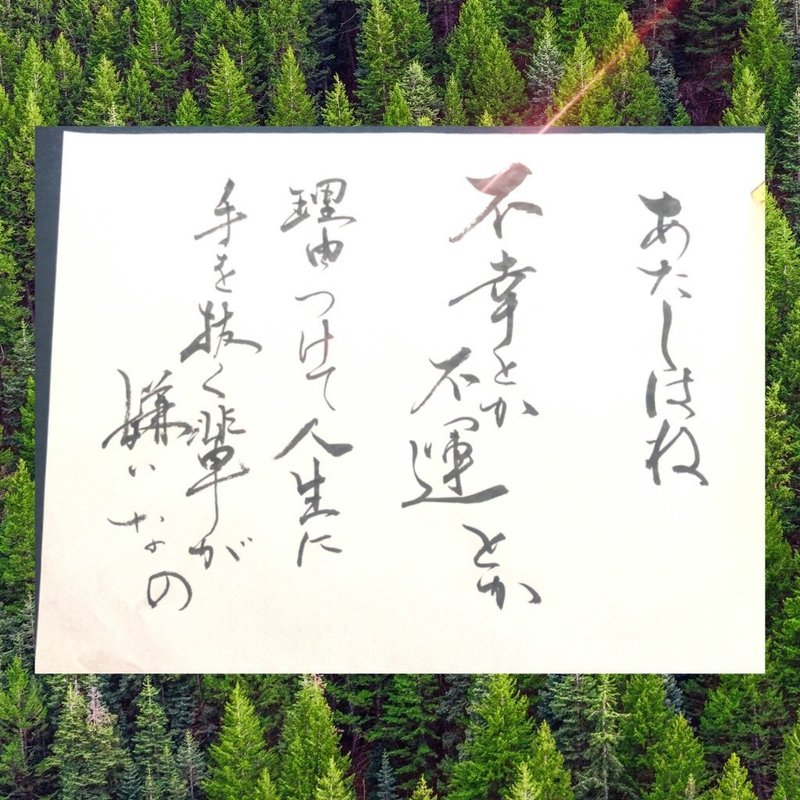 あたしはね
不幸とか
不運とか
理由つけて人生に
手を抜く輩が
嫌いなの